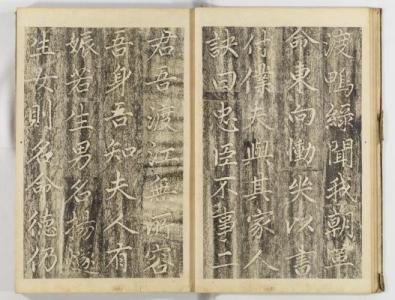 渡鴨綠聞我朝革
命東向慟哭以書
付僕夫與其家人
訣曰忠臣不事二
君吾渡江無所容
吾身吾知夫人有
娠若生男名揚燧
生女則名命德仍